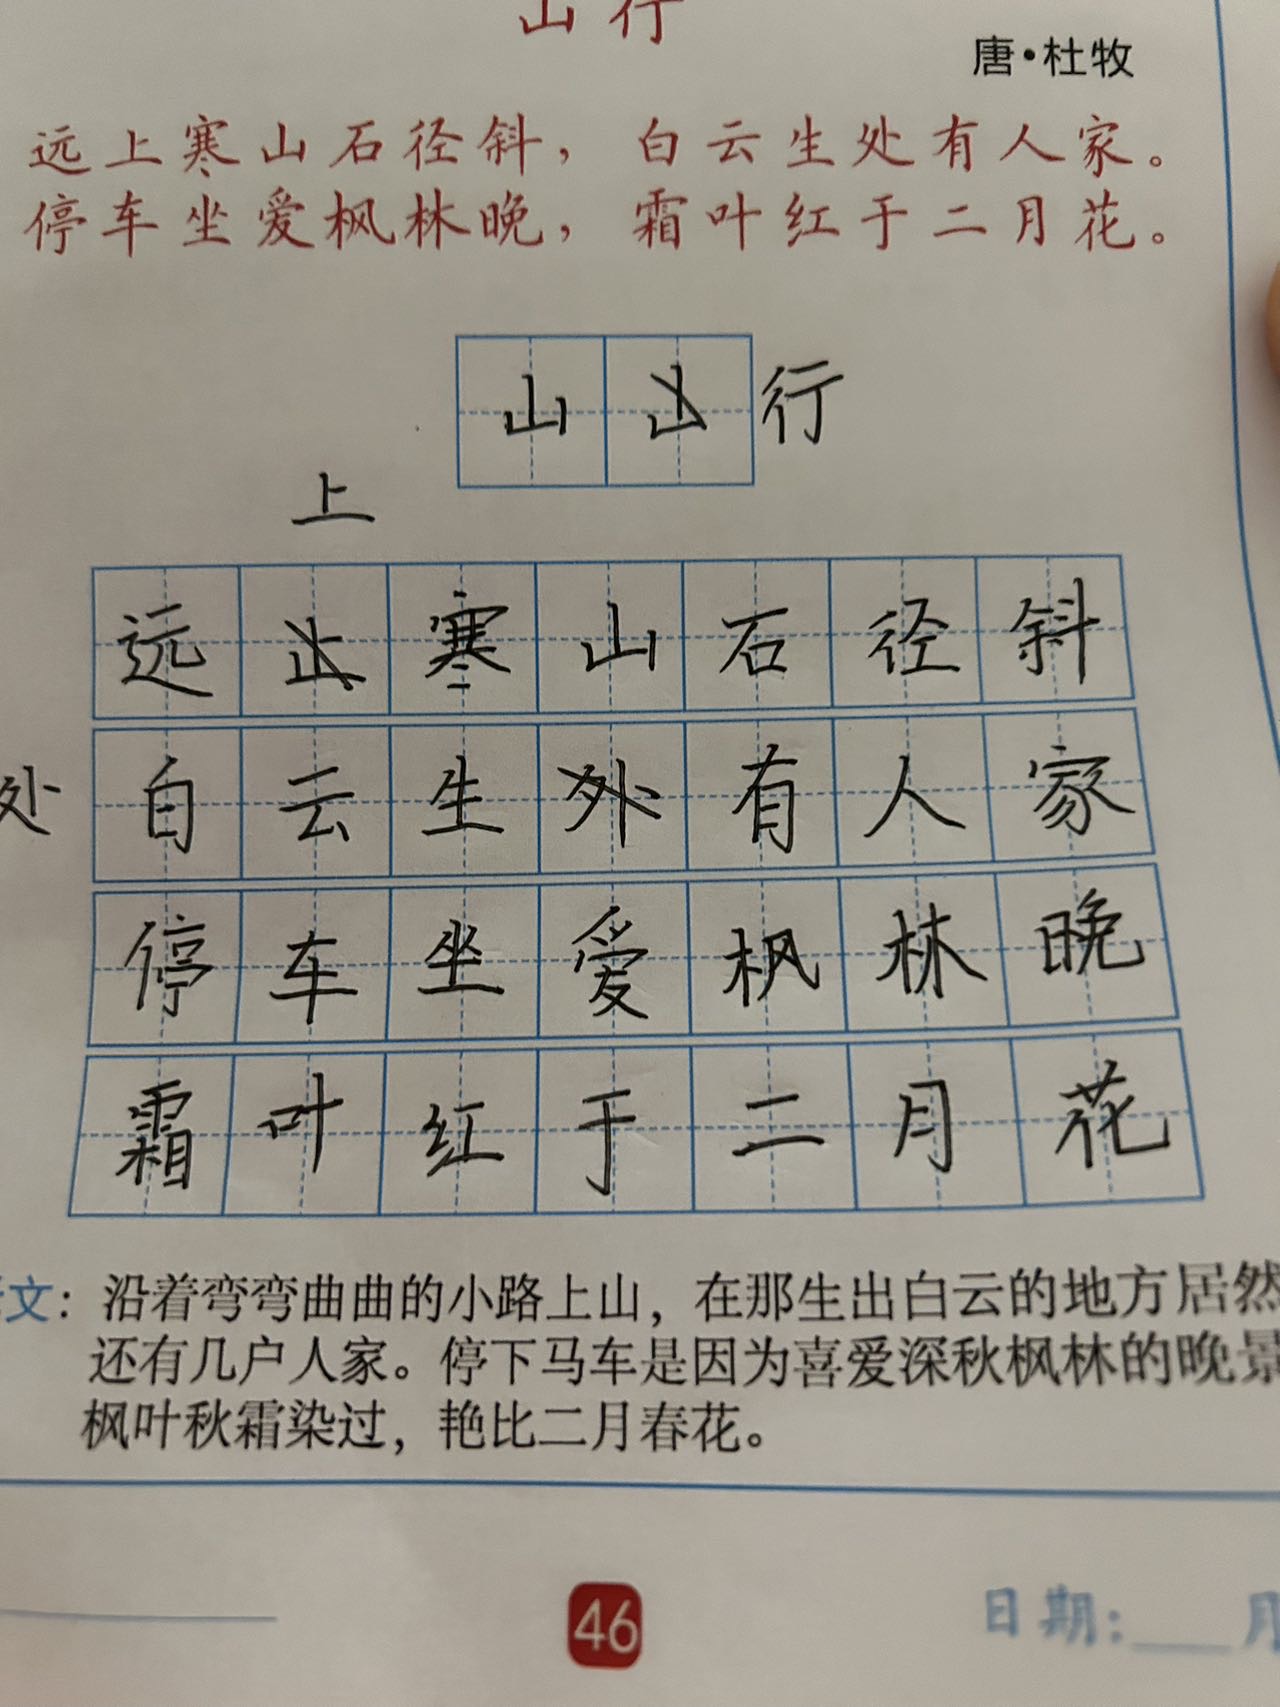 山行
唐·杜牧
远上寒山石径斜，白云生处有人家。
停车坐爱枫林晚，霜叶红于二月花。
山 山 行
上
远 止 寒 山 石 径 斜
处 白 云 生 外 有 人 家
停 车 坐 爱 枫 林 晚
霜 叶 红 于 二 月 花
文：沿着弯弯曲曲的小路上山，在那生出白云的地方居然
还有几户人家。停下马车是因为喜爱深秋枫林的晚景
枫叶秋霜染过，艳比二月春花。
46
日期：___月